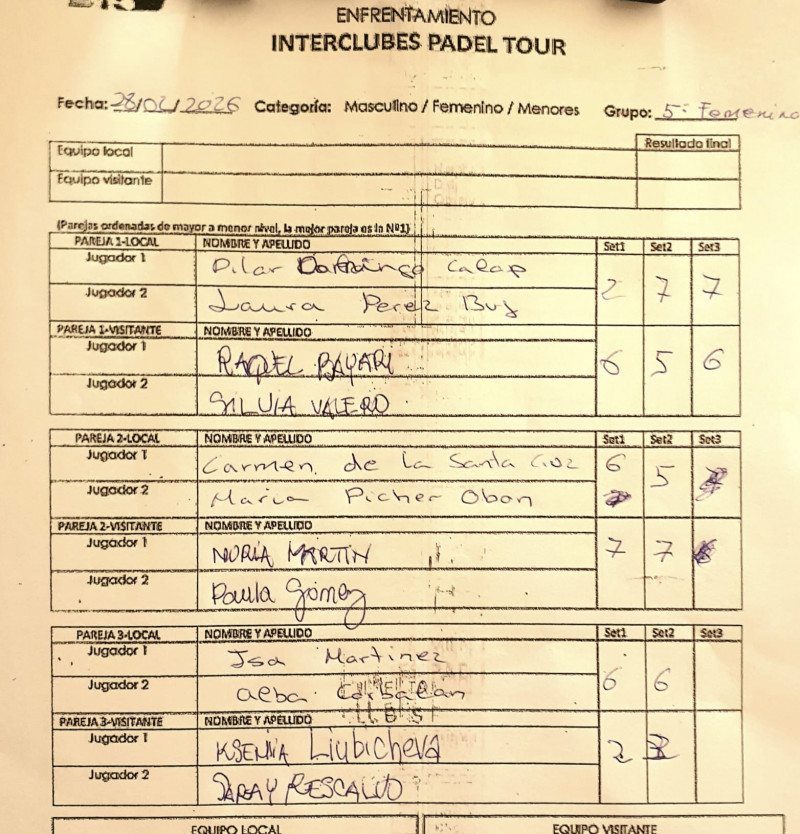 ENFRENTAMIENTO
INTERCLUBES PADEL TOUR
Fecha: 28/02/2026 Categoría: Masculino / Femenino / Menores Grupo: 5ª Femenino
Resultado final
Equipo local
Equipo visitante
(Parejas ordenadas de mayor a menor nivel, la mejor pareja es la Nº1)
PAREJA 1-LOCAL NOMBRE Y APELLIDO Set1 Set2 Set3
Jugador 1 Pilar
Jugador 2 Laura Perez Buj
2 7 7
PAREJA 1-VISITANTE NOMBRE Y APELLIDO
Jugador 1 RAQUEL BAYARRI
6 5 6
Jugador 2 SILVIA VALERO
PAREJA 2-LOCAL NOMBRE Y APELLIDO Set1 Set2 Set3
Jugador 1 Carmen de la Santa Cruz 6 5
Jugador 2 Maria Picher Obon
PAREJA 2-VISITANTE NOMBRE Y APELLIDO
Jugador 1 NURIA MARTIN 7 7
Jugador 2 Paula Gómez
PAREJA 3-LOCAL NOMBRE Y APELLIDO Set1 Set2 Set3
Jugador 1 Isa Martinez
Jugador 2 Alba Corbalan 6 6
PAREJA 3-VISITANTE NOMBRE Y APELLIDO
Jugador 1 KSENIIA Liubicheva 2
Jugador 2 SARAY RESCALVO
EQUIPO LOCAL EQUIPO VISITANTE